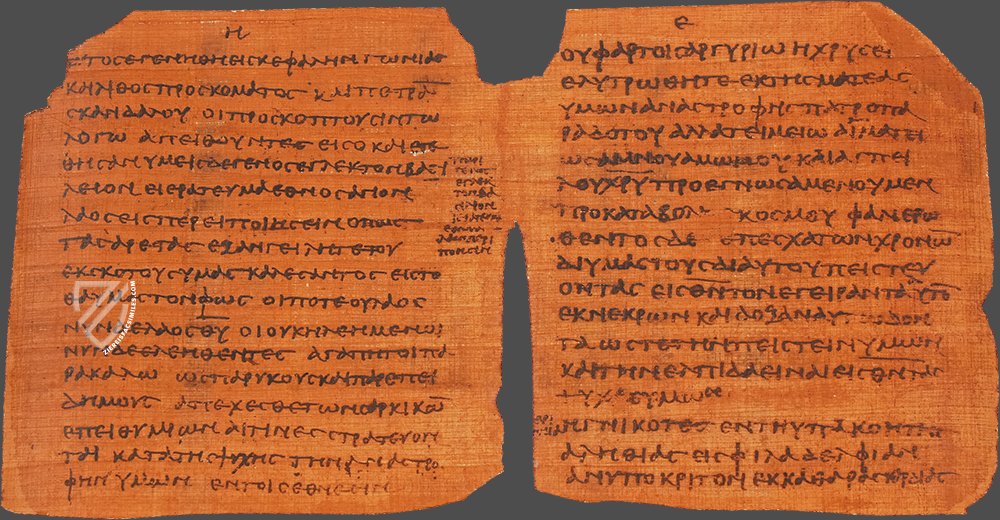 Η
ΕΤΟϹΕΓΕΝΗΘΗΕΙϹΚΕΦΑΛΗΝΓΩΝΙΑϹ
ΚΑΙΛΙΘΟϹΠΡΟϹΚΟΜΑΤΟϹ ΚΑΙΠΕΤΡΑ
ϹΚΑΝΔΑΛΟΥ ΟΙΠΡΟϹΚΟΠΤΟΥϹΙΝΤΩ
ΛΟΓΩ ΑΠΕΙΘΟΥΝΤΕϹ ΕΙϹΟΚΑΙΕΤΕ
ΘΗϹΑΝΥΜΕΙϹΔΕΓΕΝΟϹΕΓΛΕΚΤΟΝΒΑϹΙ
ΛΕΙΟΝ ΕΙΕΡΑΤΕΥΜΑΕΘΝΟϹΑΓΙΟΝ
ΛΑΟϹΕΙϹΠΕΡΕΙΠΟΙΗϹΕΙΝ ΟΠΩϹ
ΤΑϹΑΡΕΤΑϹ ΕΞΑΝΓΕΙΛΗΤΕΤΟΥ
ΕΚϹΚΟΤΟΥϹΥΜΑϹ ΚΑΛΕϹΑΝΤΟϹ ΕΙϹΤΟ
ΘΑΥΜΑϹΤΟΝΦΩϹ ΟΙΠΟΤΕΟΥΛΑΟϹ
ΝΥΝΔΕΛΑΟϹΘΥ ΟΙΟΥΚΗΛΕΗΜΕΝΟΙ
ΝΥΝΔΕΕΛΕΗΘΕΝΤΕϹ ΑΓΑΠΗΤΟΙΠΑ
ΡΑΚΑΛΩ ΩϹΠΑΡΥΚΟΥϹΚΑΙΠΑΡΕΠΕΙ
ΔΗΜΟΥϹ ΑΠΕΧΕϹΘΕΤΩΝϹΑΡΚΙΚΩ
ΕΠΕΙΘΥΜΙΩΝ ΑΙΤΙΝΕϹ ϹΤΡΑΤΕΥΟΝ
ΤΑΙ ΚΑΤΑΤΗϹΨΥΧΗϹ ΤΗΝΑΝΑϹΤΡΟ
ΦΗΝΥΜΩΝ ΕΝΤΟΙϹΕΘΝΕϹΙΝ
ΠΕΡΙ
ΠΟΙΗϹΙΝ
Ε
ΟΥΦΘΑΡΤΟΙϹΑΡΓΥΡΙΩ ΗΧΡΥϹΕΙ
ΕΛΥΤΡΩΘΗΤΕ ΕΚΤΗϹΜΑΤΕΑϹ
ΥΜΩΝΑΝΑϹΤΡΟΦΗϹΠΑΤΡΟΠΑ
ΡΑΔΟΤΟΥ ΑΛΛΑΤΕΙΜΕΙΩΑΙΜΑΤΕΙ
ΩϹΑΜΝΟΥΑΜΩΜΟΥ ΚΑΙΑϹΠΕΙ
ΛΟΥΧΡΥ ΠΡΟΕΓΝΩϹΑΜΕΝΟΥΜΕΝ
ΠΡΟΚΑΤΑΒΟΛΗϹ ΚΟϹΜΟΥ ΦΑΝΕΡΩ
ΘΕΝΤΟϹΔΕ ΕΠΕϹΧΑΤΩΝΧΡΟΝΩ
ΔΙΥΜΑϹΤΟΥϹΔΙΑΥΤΟΥΠΕΙϹΤΕΥ
ΟΝΤΑϹ ΕΙϹΘΝΤΟΝΕΓΕΙΡΑΝΤΑΑΥΤΟ
ΕΚΝΕΚΡΩΝ ΚΑΙΔΟΞΑΝΑΥΤΩΔΟΝ
ΤΑΩϹΤΕΤΗΝΠΕΙϹΤΕΙΝΥΜΩΝ
ΚΑΙΤΗΝΕΛΠΙΔΑΕΙΝΑΙΕΙϹΘΝΤΑϹ
ΨΥΧΑϹΥΜΩΝ
ΗΓΝΙΚΟΤΕϹ ΕΝΤΗΥΠΑΚΟΗΤΗϹ
ΑΛΗΘΙΑϹ ΕΙϹΦΙΛΑΔΕΛΦΙΑΝ
ΑΝΥΠΟΚΡΙΤΟΝΕΚΚΑΘΑΡΑϹΚΑΡΔΙΑϹ
ZIEREISFACSIMILES.COM